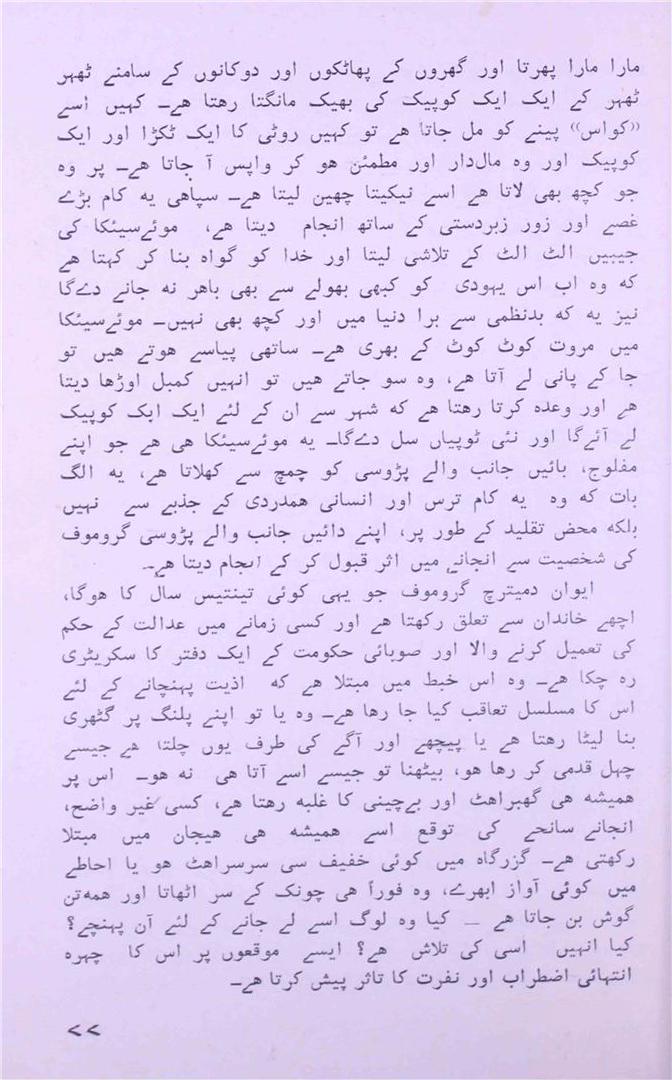 مارا مارا پھرتا اور گھروں کے پھاٹکوں اور دوکانوں کے سامنے ٹھہر
ٹھہر کے ایک ایک کوپیک کی بھیک مانگتا رھتا ھے۔ کہیں اسے
«کواس» پینے کو مل جاتا ھے تو کہیں روٹی کا ایک ٹکڑا اور ایک
کوپیک اور وہ مال‌دار اور مطمئن ھو کر واپس آ جاتا ھے۔ پر وہ
جو کچھ بھی لاتا ھے اسے نیکیتا چھین لیتا ھے۔ سپاھی یہ کام بڑے
غصے اور زور زبردستی کے ساتھ انجام دیتا ھے، موئے‌سیئکا کی
جیبیں الٹ الٹ کے تلاشی لیتا اور خدا کو گواہ بنا کر کہتا ھے
کہ وہ اب اس یہودی کو کبھی بھولے سے بھی باھر نہ جانے دے‌گا
نیز یہ کہ بدنظمی سے برا دنیا میں اور کچھ بھی نہیں۔ موئے‌سیئکا
میں مروت کوٹ کوٹ کے بھری ھے۔ ساتھی پیاسے ھوتے ھیں تو
جا کے پانی لے آتا ھے، وہ سو جاتے ھیں تو انہیں کمبل اوڑھا دیتا
ھے اور وعدہ کرتا رھتا ھے کہ شہر سے ان کے لئے ایک ایک کوپیک
لے آئے‌گا اور نئی ٹوپیاں سل دے‌گا۔ یہ موئے‌سیئکا ھی ھے جو اپنے
مفلوج، بائیں جانب والے پڑوسی کو چمچ سے کھلاتا ھے، یہ الگ
بات کہ وہ یہ کام ترس اور انسانی ھمدردی کے جذبے سے نہیں
بلکہ محض تقلید کے طور پر، اپنے دائیں جانب والے پڑوسی گروموف
کی شخصیت سے انجانے میں اثر قبول کر کے انجام دیتا ھے۔
ایوان دمیترچ گروموف جو یہی کوئی تینتیس سال کا ھوگا،
اچھے خاندان سے تعلق رکھتا ھے اور کسی زمانے میں عدالت کے حکم
کی تعمیل کرنے والا اور صوبائی حکومت کے ایک دفتر کا سکریٹری
رہ چکا ھے۔ وہ اس خبط میں مبتلا ھے کہ اذیت پہنچانے کے لئے
اس کا مسلسل تعاقب کیا جا رھا ھے۔ وہ یا تو اپنے پلنگ پر گٹھری
بنا لیٹا رھتا ھے یا پیچھے اور آگے کی طرف یوں چلتا ھے جیسے
چہل قدمی کر رھا ھو، بیٹھنا تو جیسے اسے آتا ھی نہ ھو۔ اس پر
ھمیشہ ھی گھبراھٹ اور بے‌چینی کا غلبہ رھتا ھے، کسی غیر واضح،
انجانے سانحے کی توقع اسے ھمیشہ ھی ھیجان میں مبتلا
رکھتی ھے۔ گزرگاہ میں کوئی خفیف سی سرسراھٹ ھو یا احاطے
میں کوئی آواز ابھرے، وہ فوراً ھی چونک کے سر اٹھاتا اور ھمہ‌تن
گوش بن جاتا ھے — کیا وہ لوگ اسے لے جانے کے لئے آن پہنچے؟
کیا انہیں اسی کی تلاش ھے؟ ایسے موقعوں پر اس کا چہرہ
انتہائی اضطراب اور نفرت کا تاثر پیش کرتا ھے۔
۷۷